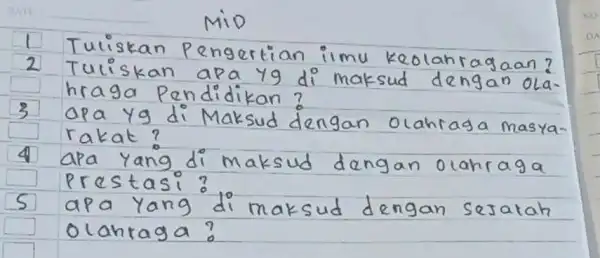 MiD
1 Tuliskan Pengertian ilmu keolahragaan?
2 Tuliskan apa yg di maksud dengan ola-
hraga Pendidikan?
3 apa yg di Maksud dengan olahraga masya-
rakat?
4 apa yang di maksud dengan olahraga
Prestasi?
5 apa yang di maksud dengan sejarah
olahraga?